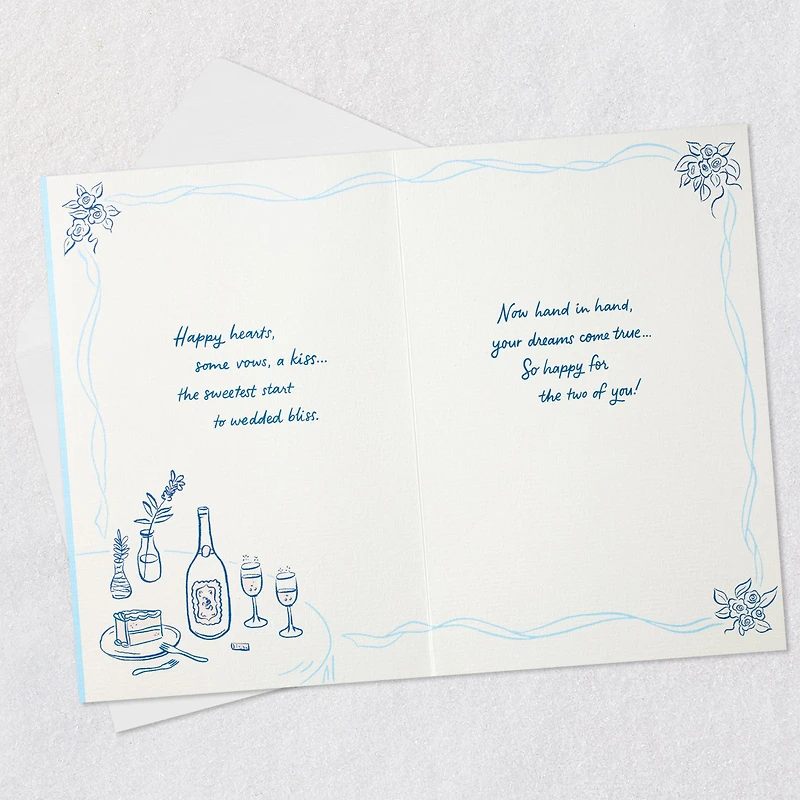 Happy hearts,
some vows, a kiss...
the sweetest start
to wedded bliss.
Now hand in hand,
your dreams come true...
So happy for
the two of you!